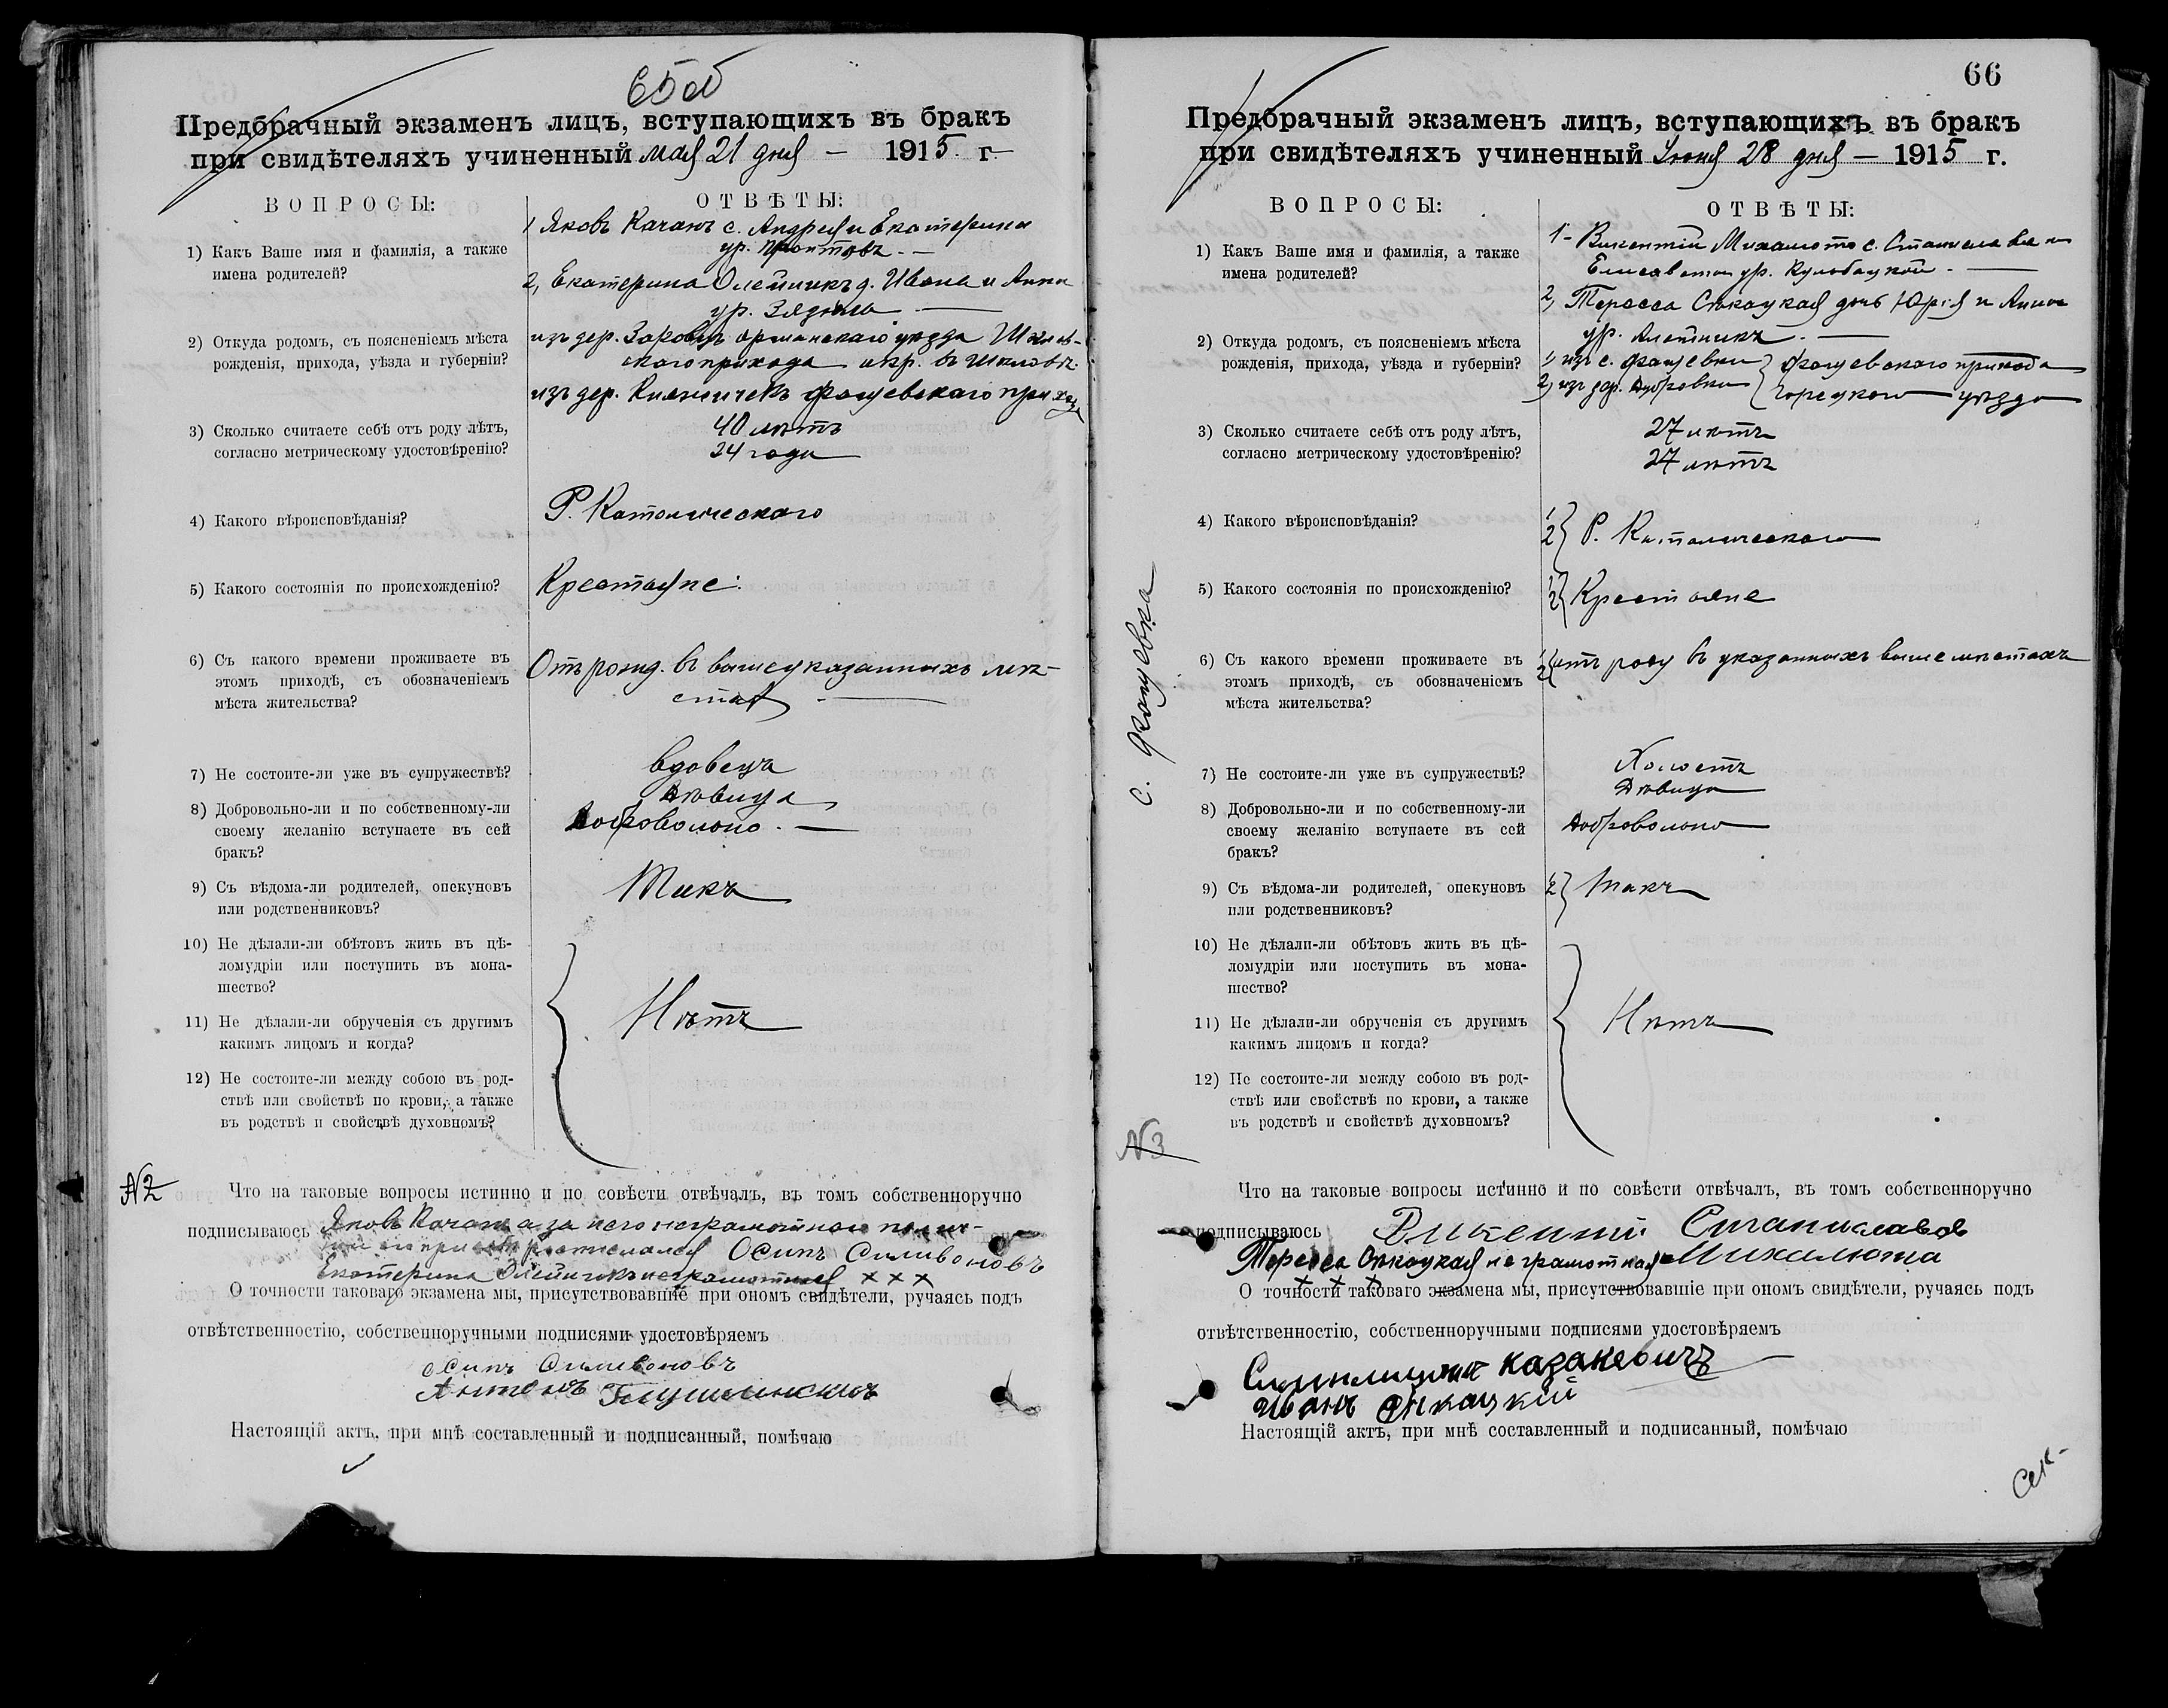 65об
Предбрачный экзаменъ лицъ, вступающихъ въ бракъ
при свидѣтеляхъ учиненный мая 21 дня — 1915 г.
ВОПРОСЫ:
ОТВѢТЫ:
1) Какъ Ваше имя и фамилія, а также
имена родителей?
1 Яковъ Качанъ с. Андрея и Екатерины
ур.
2, Екатерина Олейникъ д. Ивана и Анны
ур.
2) Откуда родомъ, съ поясненіемъ мѣста
рожденія, прихода, уѣзда и губерніи?
изъ дер. оршанскаго уѣзда Шклов-
скаго прихода въ Шкловѣ.
изъ дер. Фащевскаго прихода
3) Сколько считаете себѣ отъ роду лѣтъ,
согласно метрическому удостовѣренію?
40 лѣтъ
24 года
4) Какого вѣроисповѣданія?
Р. Католическаго
5) Какого состоянія по происхожденію?
Крестьяне:
6) Съ какого времени проживаете въ
этомъ приходѣ, съ обозначеніемъ
мѣста жительства?
Отъ рожд. въ вышеуказанныхъ мѣ-
стах —
7) Не состоите-ли уже въ супружествѣ?
вдовецъ
Дѣвица
8) Добровольно-ли и по собственному-ли
своему желанію вступаете въ сей
бракъ?
Добровольно. —
9) Съ вѣдома-ли родителей, опекуновъ
или родственниковъ?
Такъ
10) Не дѣлали-ли обѣтовъ жить въ цѣ-
ломудріи или поступить въ мона-
шество?
11) Не дѣлали-ли обрученія съ другимъ
какимъ лицомъ и когда?
12) Не состоите-ли между собою въ род-
ствѣ или свойствѣ по крови, а также
въ родствѣ и свойствѣ духовномъ?
Нѣтъ
N2
Что на таковые вопросы истинно и по совѣсти отвѣчалъ, въ томъ собственноручно
подписываюсь Яковъ Качанъ а за него неграмотнаго
росписался Осипъ Силивоновъ
Екатерина Олейникъ неграмотная ×××
О точности таковаго экзамена мы, присутствовавшіе при ономъ свидѣтели, ручаясь подъ
отвѣтственностію, собственноручными подписями удостовѣряемъ
Осипъ Силивоновъ
Антонъ
Настоящій актъ, при мнѣ составленный и подписанный, помѣчаю
66
Предбрачный экзаменъ лицъ, вступающихъ въ бракъ
при свидѣтеляхъ учиненный Іюня 28 дня — 1915 г.
ВОПРОСЫ:
ОТВѢТЫ:
1) Какъ Ваше имя и фамилія, а также
имена родителей?
1- Викентій Михалюта с. Станислава и
Елисаветы ур.
2, Тересса Сѣкацкая дочь Юрія и Анны
ур.
2) Откуда родомъ, съ поясненіемъ мѣста
рожденія, прихода, уѣзда и губерніи?
1, изъ с. Фащевки } Фащевскаго прихода
2, изъ дер. Дубровки } Горецкаго уѣзда
3) Сколько считаете себѣ отъ роду лѣтъ,
согласно метрическому удостовѣренію?
27 лѣтъ
27 лѣтъ
4) Какого вѣроисповѣданія?
1 2 } Р. Католическаго
5) Какого состоянія по происхожденію?
1 2 } Крестьяне
6) Съ какого времени проживаете въ
этомъ приходѣ, съ обозначеніемъ
мѣста жительства?
1 2 { отъ роду въ указанныхъ выше мѣстахъ
7) Не состоите-ли уже въ супружествѣ?
Холостъ
Дѣвица
8) Добровольно-ли и по собственному-ли
своему желанію вступаете въ сей
бракъ?
Добровольно
9) Съ вѣдома-ли родителей, опекуновъ
или родственниковъ?
1 2 } Такъ
10) Не дѣлали-ли обѣтовъ жить въ цѣ-
ломудріи или поступить въ мона-
шество?
11) Не дѣлали-ли обрученія съ другимъ
какимъ лицомъ и когда?
12) Не состоите-ли между собою въ род-
ствѣ или свойствѣ по крови, а также
въ родствѣ и свойствѣ духовномъ?
Нѣтъ
с. Фащевка
N3
Что на таковые вопросы истинно и по совѣсти отвѣчалъ, въ томъ собственноручно
подписываюсь Викентій Станиславов
Тересса Сѣкацкая неграмотная Михалюта
× × ×
О точности таковаго экзамена мы, присутствовавшіе при ономъ свидѣтели, ручаясь подъ
отвѣтственностію, собственноручными подписями удостовѣряемъ
Казакевичъ
Иванъ Сѣкацкій
Настоящій актъ, при мнѣ составленный и подписанный, помѣчаю